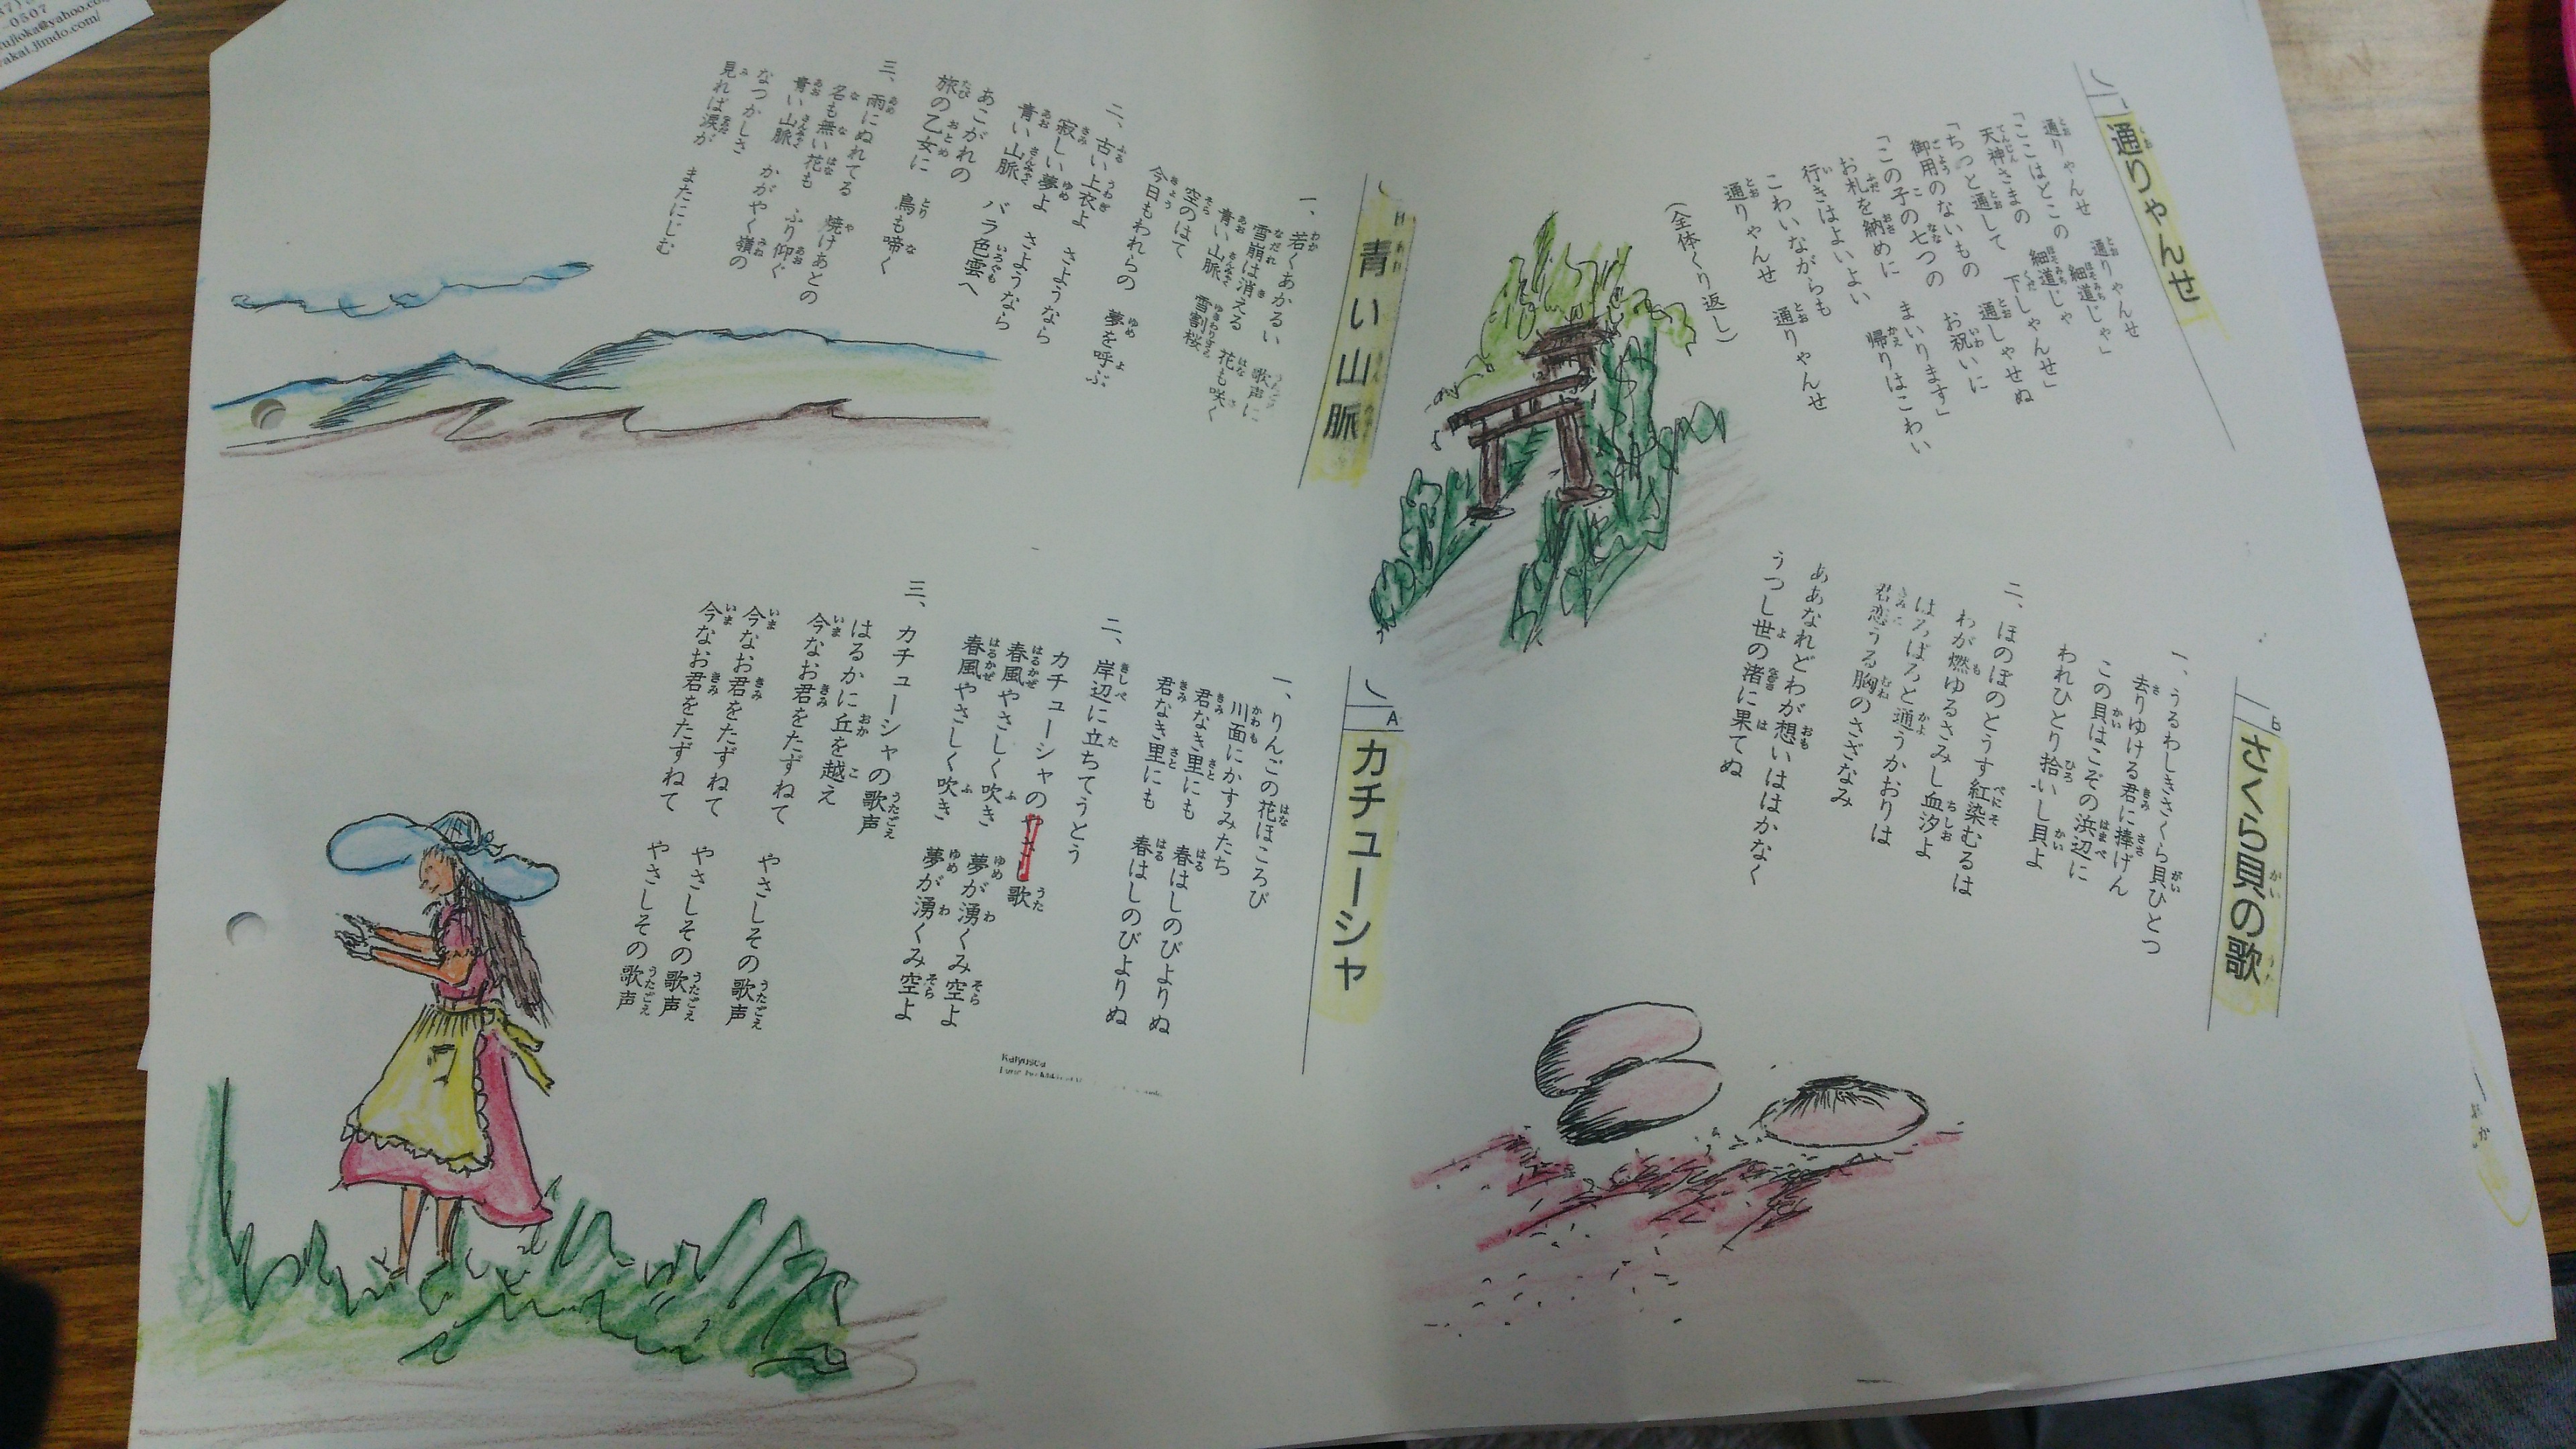 通りゃんせ
通りゃんせ 通りゃんせ
「ここはどこの 細道じゃ」
天神さまの 細道じゃ
「ちっと通して 下しゃんせ」
御用のないもの 通しゃせぬ
「この子の七つの お祝いに
お札を納めに まいります」
行きはよいよい 帰りはこわい
こわいながらも
通りゃんせ 通りゃんせ
(全体くり返し)
B
さくら貝の歌
一、うるわしきさくら貝ひとつ
去りゆける君に捧げん
この貝はこぞの浜辺に
われひとり拾いし貝よ
二、ほのぼのとうす紅染むるは
わが燃ゆるさみし血汐よ
はろばろと通うかおりは
君恋うる胸のさざなみ
ああなれどわが想いははかなく
うつし世の渚に果てぬ
H
青い山脈
一、若くあかるい 歌声に
雪崩は消える 花も咲く
青い山脈 雪割桜
空のはて
今日もわれらの 夢を呼ぶ
二、古い上衣よ さようなら
寂しい夢よ さようなら
青い山脈 バラ色雲へ
あこがれの
旅の乙女に 鳥も啼く
三、雨にぬれてる 焼けあとの
名も無い花も ふり仰ぐ
青い山脈 かがやく嶺の
なつかしさ
見れば涙が またにじむ
A
カチューシャ
一、りんごの花ほころび
川面にかすみたち
君なき里にも 春はしのびよりぬ
君なき里にも 春はしのびよりぬ
二、岸辺に立ちてうとう
カチューシャの 歌
春風やさしく吹き 夢が湧くみ空よ
春風やさしく吹き 夢が湧くみ空よ
三、カチューシャの歌声
はるかに丘を越え
今なお君をたずねて やさしその歌声
今なお君をたずねて やさしその歌声
今なお君をたずねて やさしその歌声
0507
ujioka@yahoo.co
akai.jimdo.com/